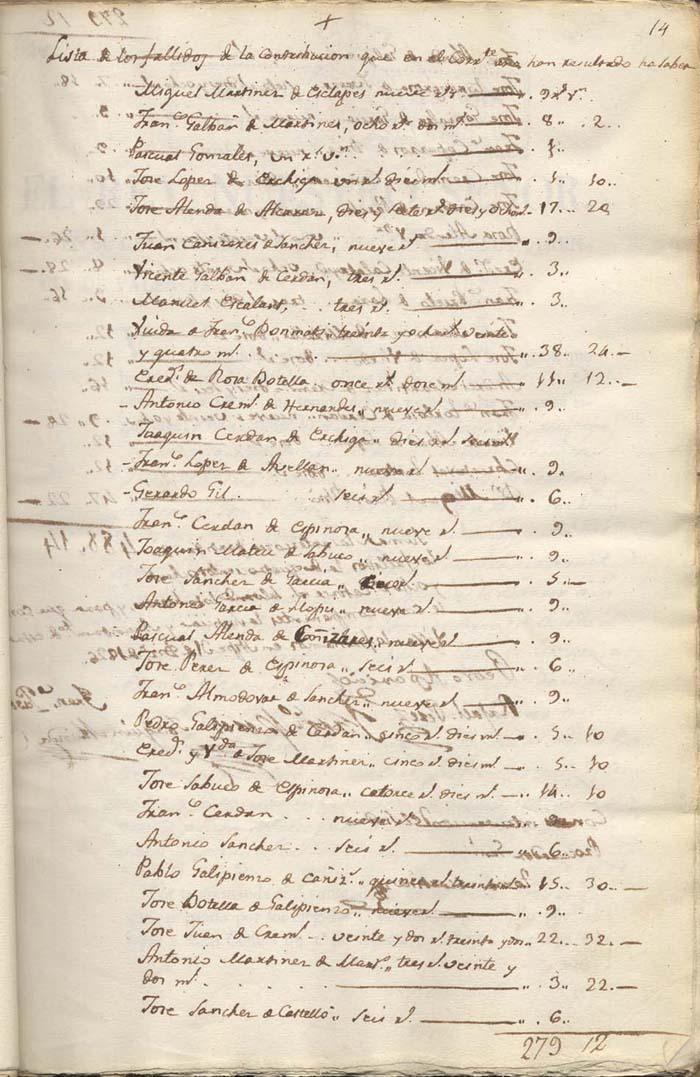 14
Lista de los fallidos de la contribucion que en el corr.te año han resultado ha saber
Miguel Martinez de Esclapes nueve r.s v.n 9 r.s v.n
Fran.co Galbañ de Martines, ocho r.s dos m.s 8 " 2 ..
Pascual Gonzales, un r.l v.n 1 ..
Jose Lopez de Erchiga un r.l dies m.s 1 .. 10 ..
Jose Alenda de Alcaraz, dies y siete r.s dies y ocho m.s 17 .. 28
Juan Cañizares de Sancher, nueve r.s 9 ..
Vicente Galbañ de Cerdan, tres r.s 3 ..
Manuel Escalant, tres r.s 3 ..
Viuda de Fran.co Bonmati treinta y ocho r.s veinte
y quatro m.s 38 .. 24 . —
Ered.s de Rosa Botella once r.s dose m.s 11 " 12 . —
- Antonio Crem.s de Hernandes nueve r.s " 9 ..
Joaquin Cerdan de Erchiga " dies r.s seis m.s
- Fran.co Lopez de Avellan " nueve r.s " . 9 ..
- Gerardo Gil . seis r.s " . 6 ..
Fran.co Cerdan de Espinosa " nueve r.s 9 ..
Joaquin Mateu de Sabuco " nueve r.s 9 ..
Jose Sancher de Garcia " cinco r.s 5 " —
Antonio Garcia de Llopis " nueve r.s 9 ..
Pascual Alenda de Cañizares, nueve r.s 9 ..
Jose Perez de Espinosa " seis r.s 6 ..
Fran.co Almodovar de Sancher " nueve r.s 9 ..
Pedro Galipienzo de Cerdan " cinco r.s dies m.s 5 .. 10
Ered.s y V.da de Jose Martiner " cinco r.s dies m.s 5 . 10
Jose Sabuco de Espinosa " catorce r.s dies m.s 14 .. 10
Fran.co Cerdan . . nueve r.s
Antonio Sancher . . seis r.s " . 6 ..
Pablo Galipienzo de Cañiz.s " quince r.s treinta m.s 15 .. 30 . —
Jose Botella de Galipienzo " nueve r.s " . 9 ..
Jose Juan de Crem.s . . veinte y dos r.s treinta y dos 22 .. 32 . —
Antonio Martiner de Mart.s " tres r.s veinte y
dos m.s . . . 3 " 22 . —
Jose Sancher de Castelló " seis r.s " . 6 ..
279 12